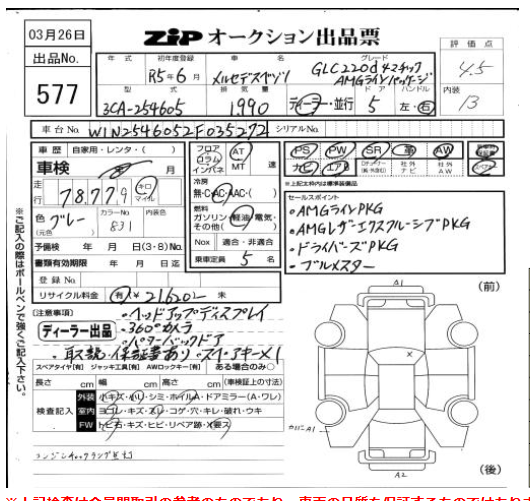 03月26日
ZIPオークション出品票
出品No.
577
年式 初年度登録 車名 グレード
R5年6月 メルセデスベンツ GLC220d 4マチック
AMGラインパッケージ
型式 排気量 ドア ハンドル
3CA-254605 1,990 ディーラー・並行 5 左・右
評価点
4.5
内装
B
車台No. W1N2546052F035272 シリアルNo.
車歴 自家用・レンタ・( )
車検 月
走行 78,779 キロ マイル
色 グレー カラーNo 831 内装色
(元色)
予備検 年 月 日(3・8)No.
書類有効期限 年 月 日迄
登録No.
リサイクル料金 有 ¥21620 未
フロア コラム インパネ AT MT 速
冷房
無・C・AC・AAC・( )
燃料
ガソリン・軽油・電気・その他( )
Nox 適合・非適合
乗車定員 5 名
PS PW SR 革 AW
ナビ エアB 社外ナビ 社外AW
※上記太枠内は標準装備品
セールスポイント
・AMGラインPKG
・AMGレザーエクスクルーシブPKG
・ドライバーズPKG
・ブルメスター
[注意事項]
ディーラー出品
・ヘッドアップディスプレイ
・360°カメラ
・パワーバックドア
・取説・保証書あり・スペアキー×1
スペアタイヤ[有] ジャッキ工具[有] AWロックキー[有] ある場合のみ○
長さ cm 幅 cm 高さ cm (車検証上の寸法)
検査記入
外装 小キズ・小U・シミ・ホイルA・ドアミラー(A・ワレ)
室内 ヨゴレ・キズ・スレ・コゲ・穴・キレ・破れ・ウキ
FW トビ石・キズ・ヒビ・リペア跡・X要ス
エンジンチェックランプ点灯
(前)
A1
×
A1
A2
(後)
※ご記入の際はボールペンで強くご記入下さい。
※上記検査は会員間取引の参考のものであり、車両の品質を保証するものではありま